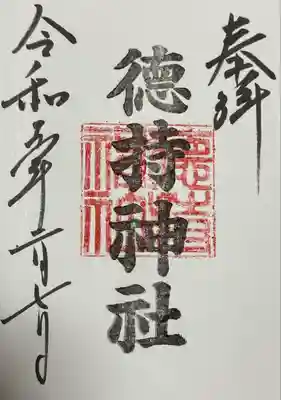 奉拝
徳持神社
令和五年月七日